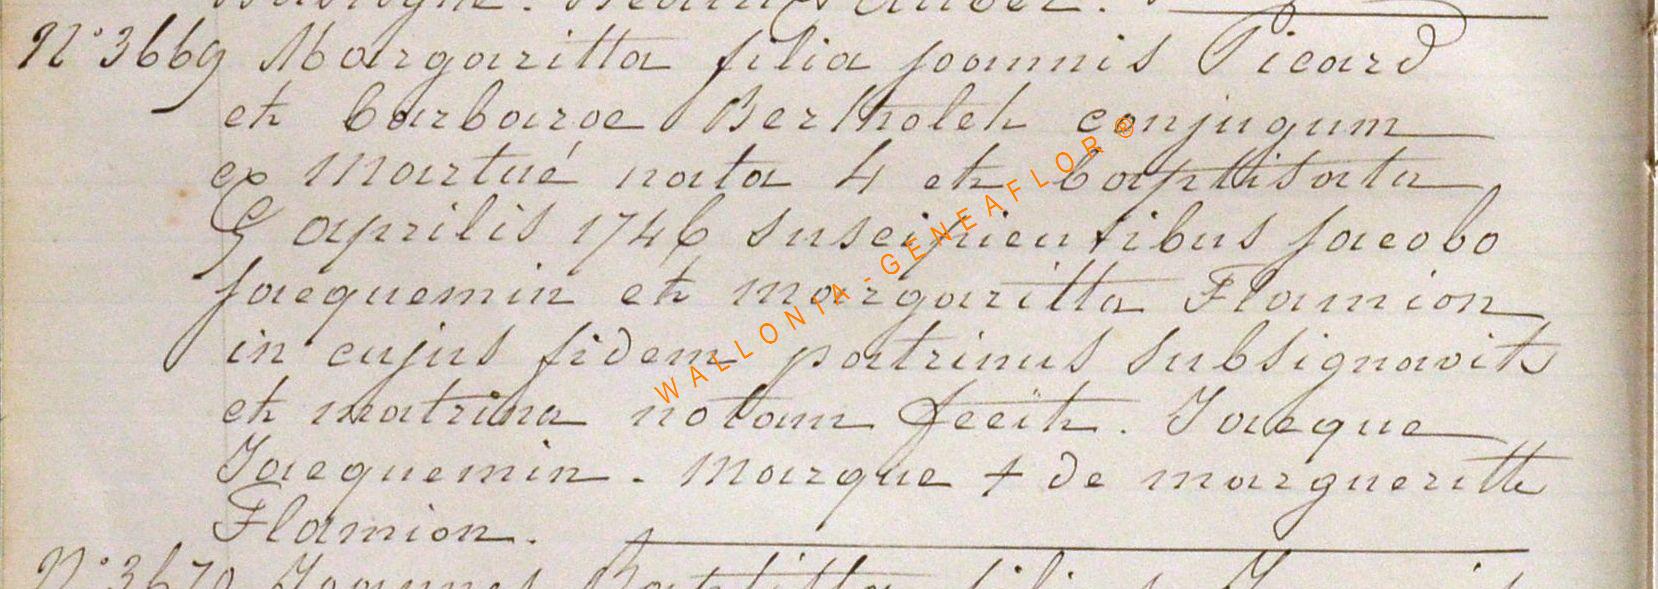 N° 3669 Margaritta filia joannis Picard
et barbarae Bertholet conjugum
ex Martué nata 4 et baptisata
G aprilis 1746 suscipientibus jacobo
jacquemin et margaritta Flamion
in cujus fidem patrinus subsignavit
et matrina notam fecit. Jacque
Jacquemin. marque + de margueritte
Flamion.
N° 3670 Joannes
WALLONIA-GENEAFLOR®